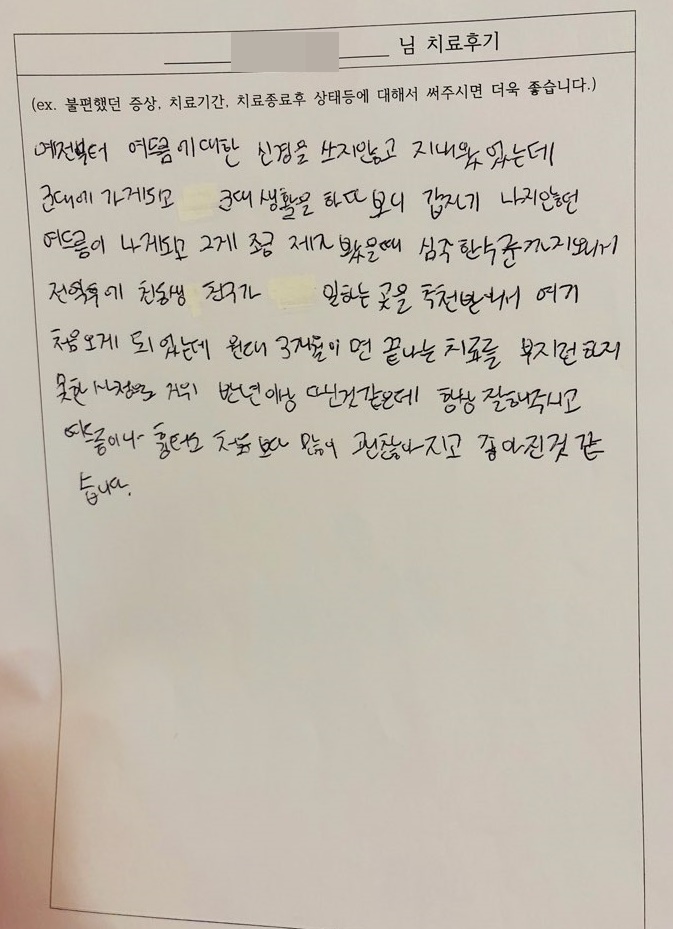 님 치료후기
(ex. 불편했던 증상, 치료기간, 치료종료후 상태등에 대해서 써주시면 더욱 좋습니다.)
예전부터 여드름에대한 신경을 쓰지않고 지내왔었는데
군대에 가게되고 군대 생활을 하다보니 갑자기 나지않던
여드름이 나게되고 그게 조금 제가 봤을때 심각한수준까지와서
전역후에 친동생 친구가 일하는 곳을 추천받아서 여기
처음오게 되었는데 원래 3개월이면 끝나는 치료를 부지런하지
못한 사정으로 거의 반년이상 다닌것같은데 항상 잘해주시고
여드름이나 흉터도 처음보다 많이 괜찮아지고 좋아진것 같
습니다.